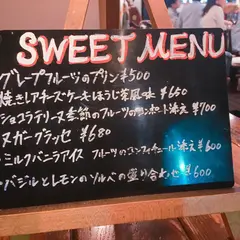 SWEET MENU
グレープフルーツのプリン ¥500
焼きレアチーズケーキほうじ茶風味 ¥650
ショコラテリーヌ 季節のフルーツのコンポート添え ¥700
ヌガーグラッセ ¥680
・ミルクバニラアイス フルーツのコンフィチュール添え ¥600
・バジルとレモンのソルベの盛り合わせ ¥600